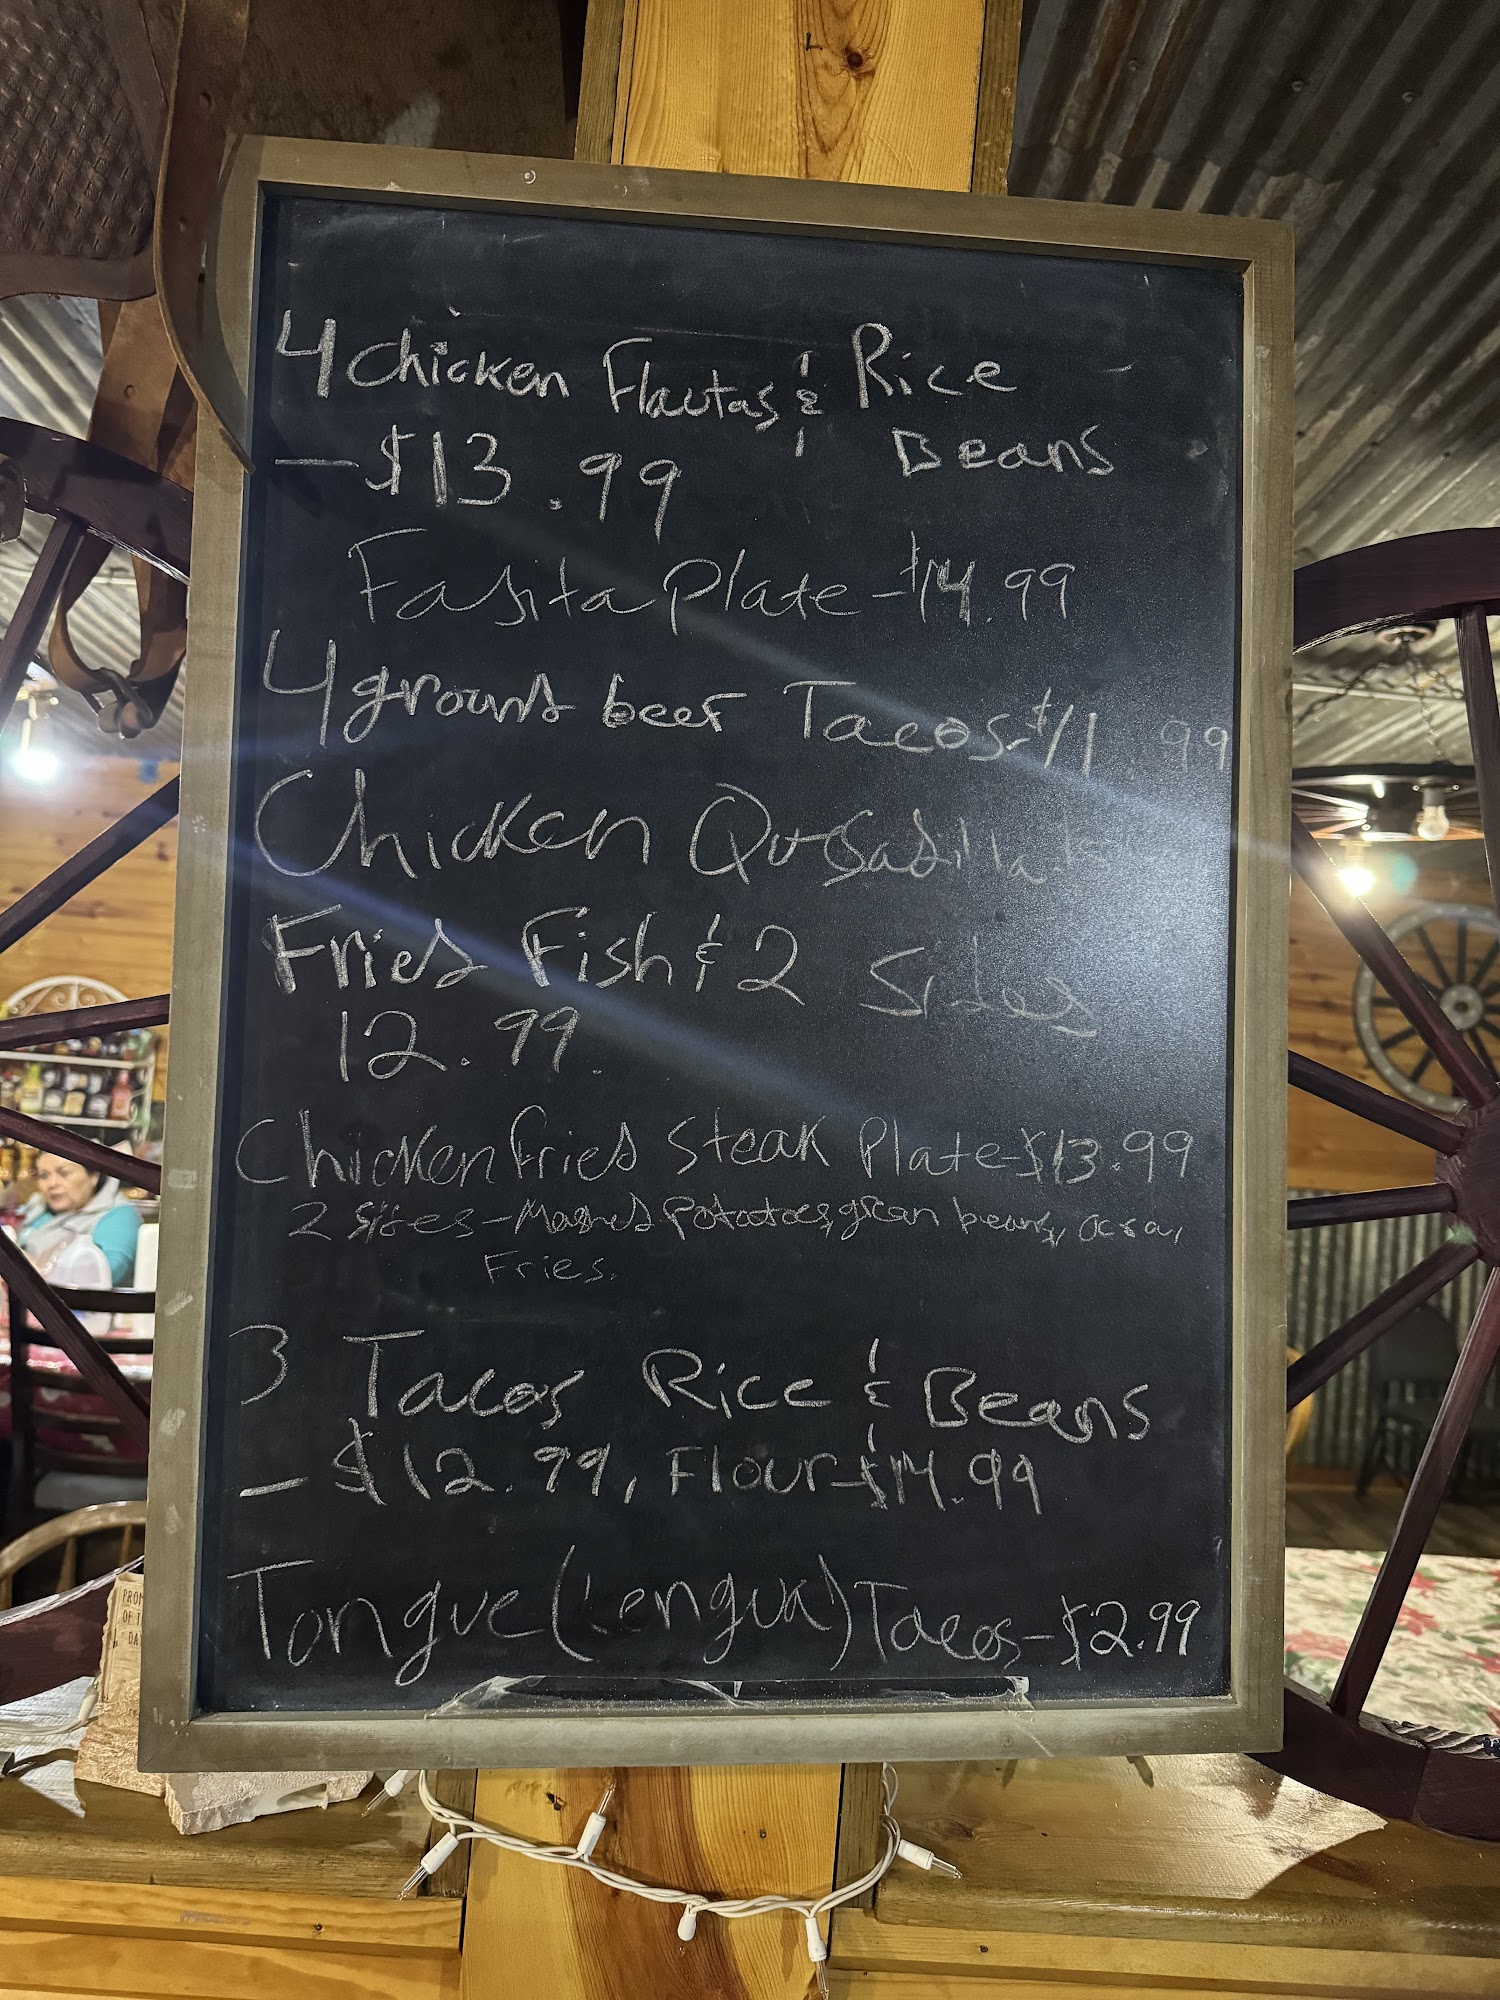 4 Chicken Flautas & Rice
- $13.99 Beans
Fajita Plate - $14.99
4 ground beef Tacos - $11.99
Chicken Qusadilla
Fried Fish & 2 Sides
12.99.
Chicken Fried Steak Plate - $13.99
2 Sides - Mashed Potatoes, green beans, okra,
Fries.
3 Tacos Rice & Beans
- $12.99, Flour - $14.99
Tongue (Lengua) Tacos - $2.99